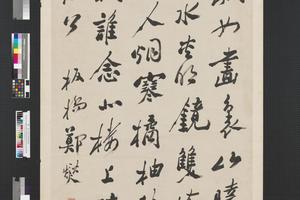 如畫裏山曉
水夾明鏡雙
人烟寒橘柚
誰念北樓上
公板橋鄭燮